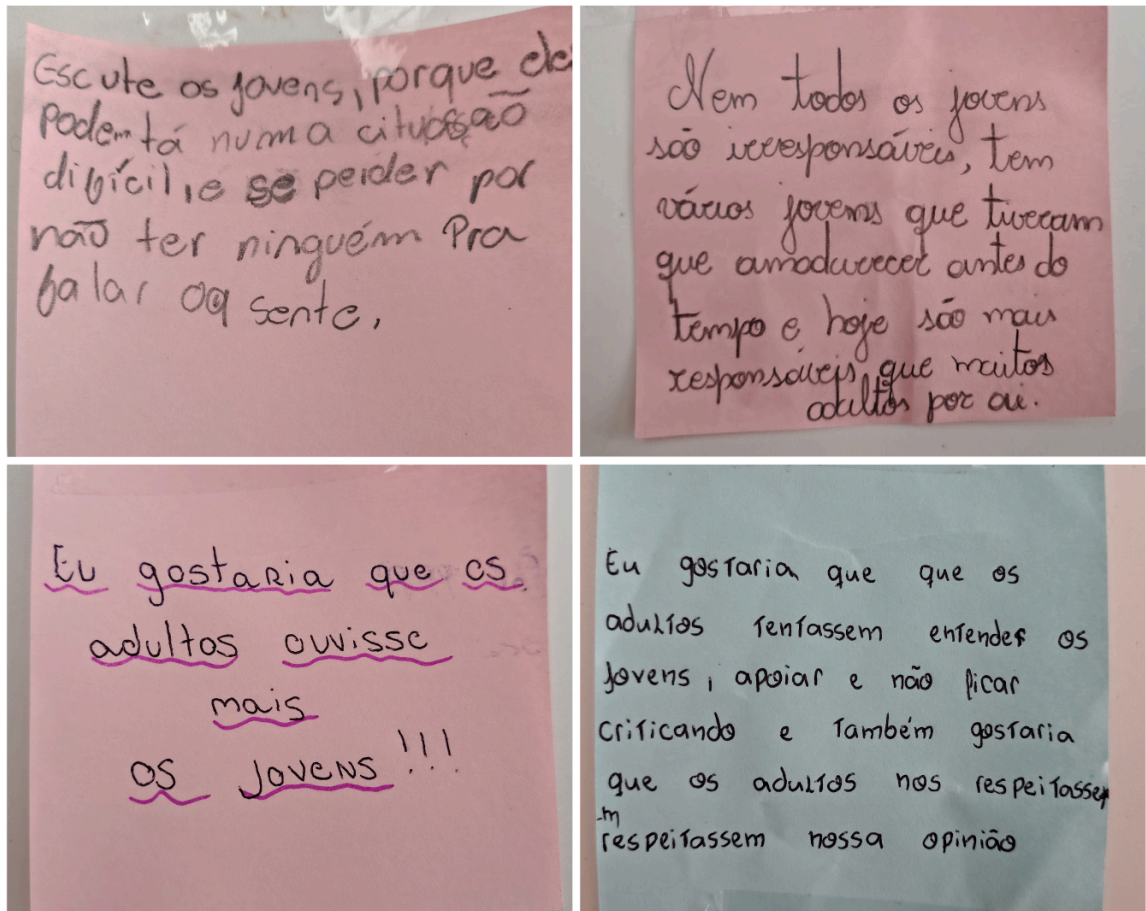 Escute os jovens, porque ele
Podem tá numa cituação
difícil, e se perder por
não ter ninguém Pra
falar oq sente,
Nem todos os jovens
são irresponsáveis, tem
vários jovens que tiveram
que amadurecer antes do
tempo e hoje são mais
responsáveis que muitos
adultos por ai.
Eu gostaria que os
adultos ouvisse
mais
os jovens!!!
Eu gostaria que que os
adultos tentassem entender os
jovens, apoiar e não ficar
criticando e também gostaria
que os adultos nos respeitasse
-m
respeitassem nossa opinião